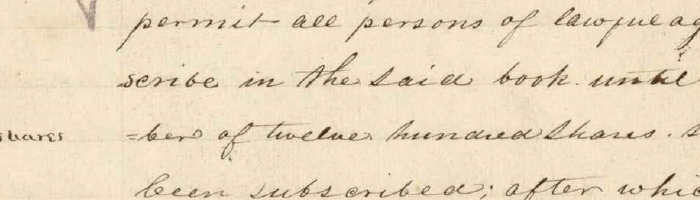 permit all persons of lawful ag
scribe in the said book until
shares =ber of twelve hundred shares. s
been subscribed; after whic